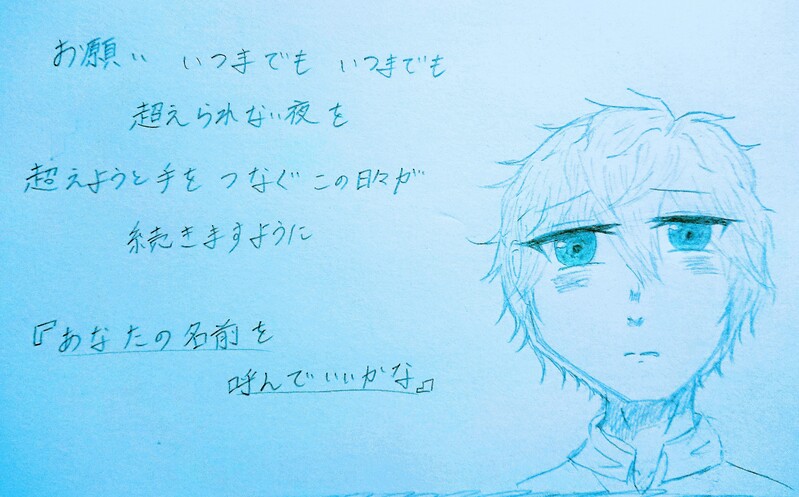 お願い いつまでも いつまでも
超えられない夜を
超えようと手を つなぐ この日々が
続きますように
『あなたの名前を
呼んでいいかな』